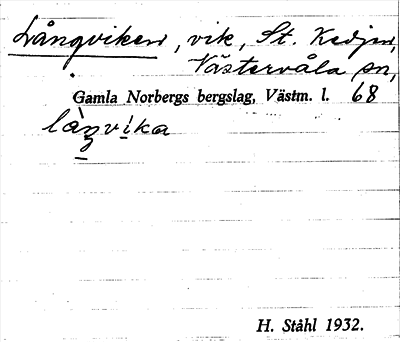 Långviken, vik, St. Kedjen,
Västervåla sn,
Gamla Norbergs bergslag, Västm. l. 68
làŋvika
H. Ståhl 1932.